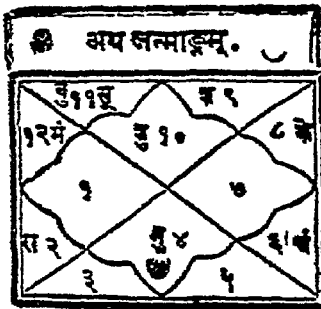 अथ जन्माङ्गम्.
बु ११ सू ९
१२ मं १० ८
१ ७
रा २ ४ ६
३ ५